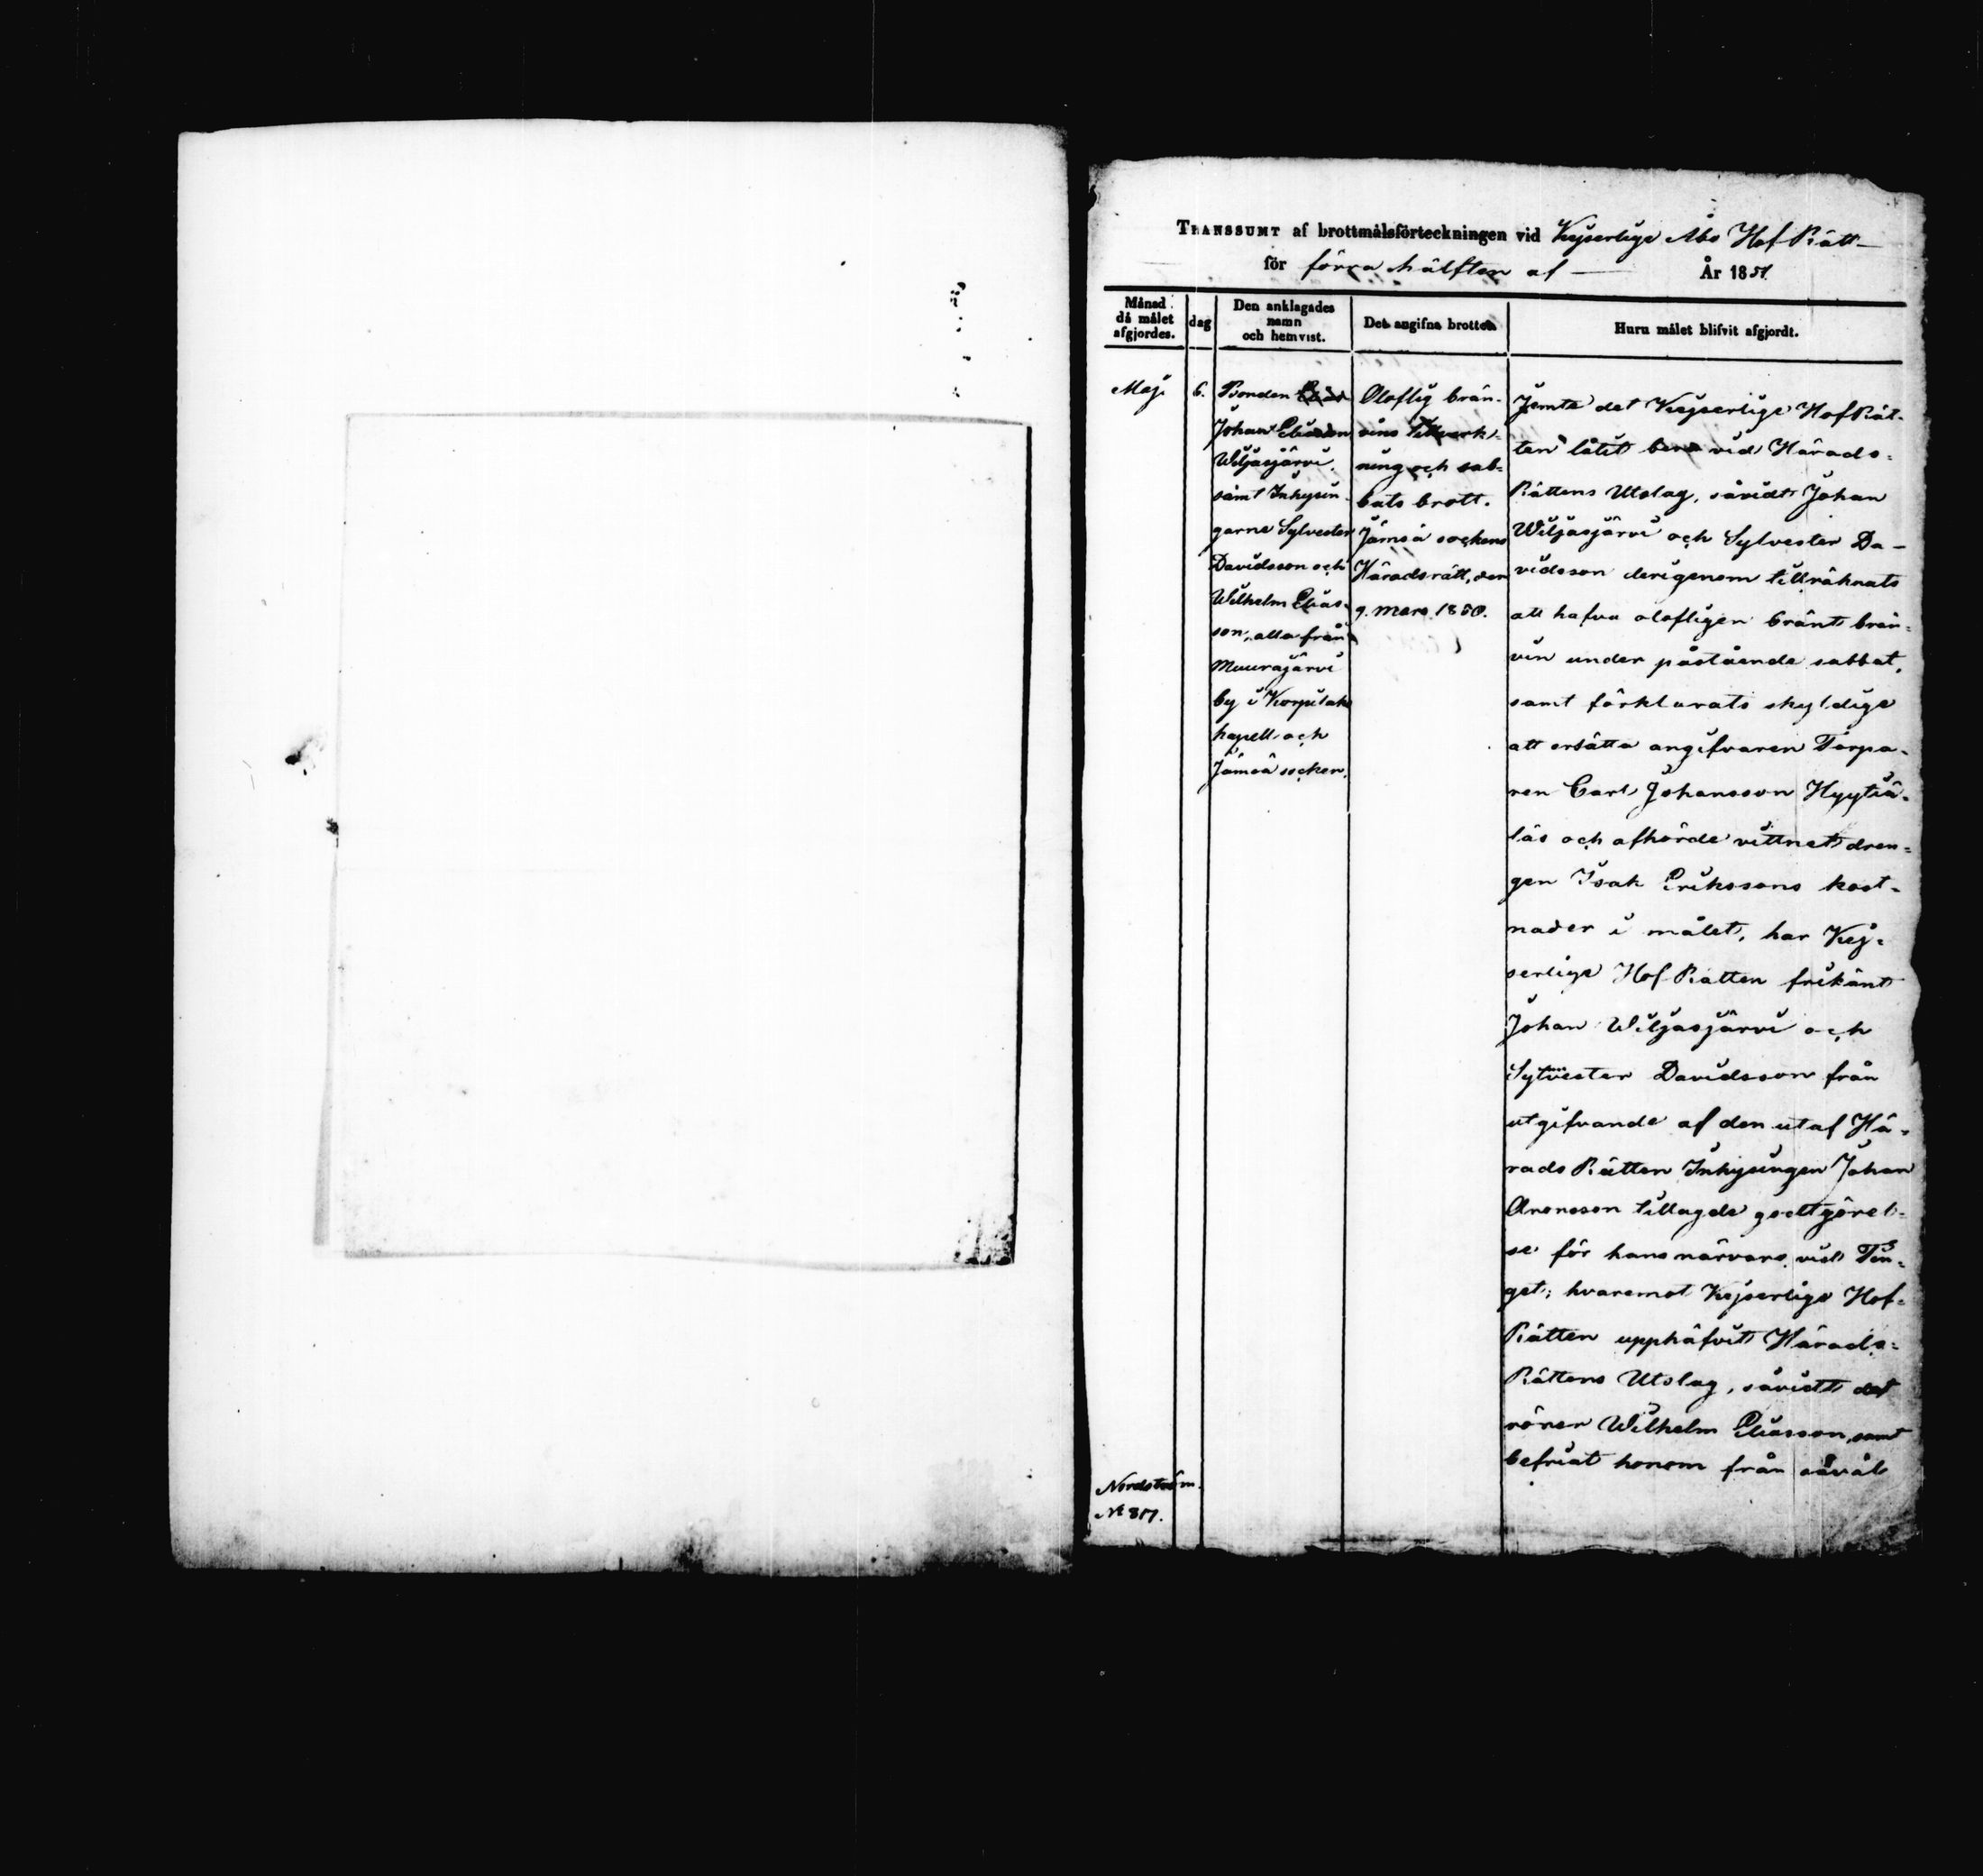 TRANSSUMT af brottmålsförteckningen vid Kejserlige Åbo Hof Rätt
för förra hälften af År 1851.
Månad då målet afgjordes.
dag
Den anklagades namn och hemvist.
Det angifna brottet
Huru målet blifvit afgjordt.
Maj
6.
Bonden
Johan Eliasson
Wiljasjärvi,
samt Inhysin-
garne Sylvester
Davidsson och
Wilhelm Elias-
son, alla från
Muurasjärvi
by i Korpilaks
kapell och
Jämsä socken.
Oloflig brän-
vins tillverk-
ning och sab-
bats brott.
Jämsä sockens
Häradsrätt, den
9. Mars 1850.
Jemte det Kejserlige HofRät-
ten låtit bero vid Härads-
Rättens Utslag, såvidt Johan
Wiljasjärvi och Sylvester Da-
vidsson derigenom tillräknats
att hafva olofligen bränt brän-
vin under påstående sabbat,
samt förklarats skyldige
att ersätta angifvaren Torpa-
ren Carl Johansson Hyytiä-
läs och afhörde vittnet dren-
gen Isak Erikssons kost-
nader i målet, har Kej-
serlige Hof Rätten frikänt
Johan Wiljasjärvi och
Sylvester Davidsson från
utgifvande af den utaf Hä-
rads Rätten Inhysingen Johan
Aronsson tillagde godtgörel-
se för hans närvaro vid Tin-
get; hvaremot Kejserlige Hof-
Rätten upphäfvit Härads-
Rättens Utslag, såvidt det
rörer Wilhelm Eliasson, samt
befriat honom från såväl
Nordström.
№ 817.